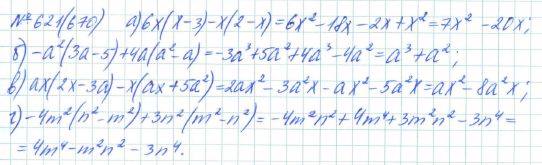 № 621(670) а) 6x(x-3)-x(2-x)=6x²-18x-2x+x²=7x²-20x;
б) -a²(3a-5)+4a(a²-a)=-3a³+5a²+4a³-4a²=a³+a²;
в) ax(2x-3a)-x(ax+5a²)=2ax²-3a²x-ax²-5a²x=ax²-8a²x;
г) -4m²(n²-m²)+3n²(m²-n²)=-4m²n²+4m⁴+3m²n²-3n⁴=
=4m⁴-m²n²-3n⁴.